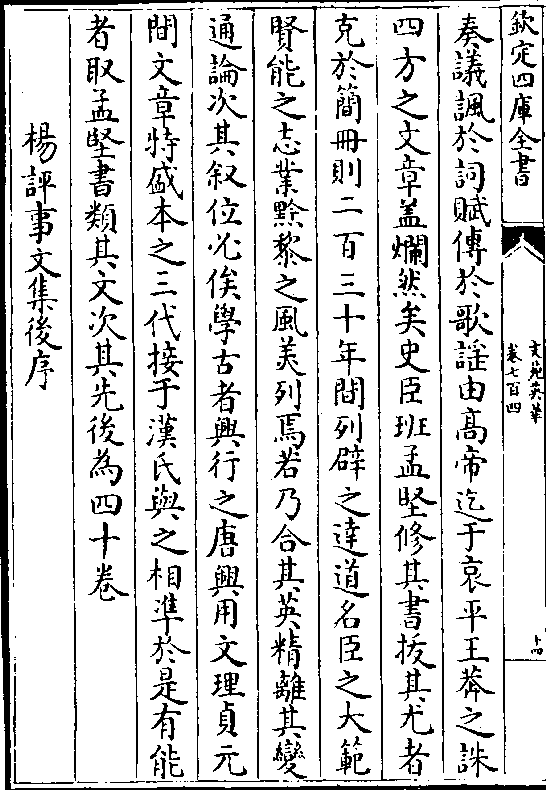 欽定四庫全書
文苑英華
卷七百四
十四
奏議諷於詞賦傳於歌謡由髙帝迄于哀平王莽之誅
四方之文章葢爛然矣史臣班孟堅修其書拔其尤者
克於簡冊則二百三十年間列辟之達道名臣之大範
賢能之志業黔黎之風美列焉若乃合其英精離其變
通論次其叙位必俟學古者興行之唐興用文理貞元
間文章特盛本之三代接于漢氏與之相準於是有能
者取孟堅書類其文次其先後為四十卷
楊評事文集後序